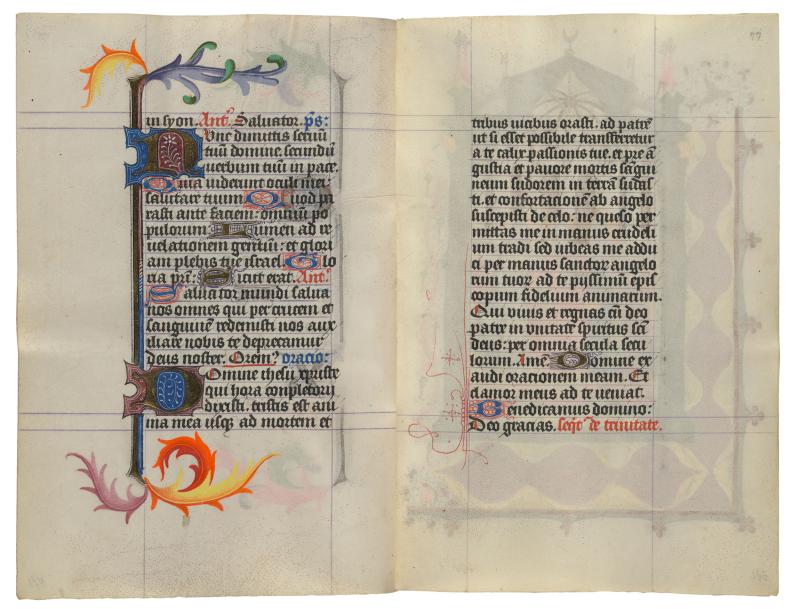 in syon. Antᵃ. Saluator. p̄s:
Nvnc dimittis seruū
tuū domine. secundū
uerbum tuū in pace.
Quia uiderunt oculi mei:
salutare tuum. Quod pa
rasti ante faciem: omniū po
pulorum. Lumen ad re
uelationem gentiū: et glori
am plebis tue israel. Glo
ria pr̄i: Sicut erat. Antᵃ.
Saluator mundi salua
nos omnes qui per crucem et
sanguinē redemisti nos aux
iliare nobis te deprecamur
deus noster. Orem⁹ oracio:
Domine ihesu xpriste
qui hora conpletorij
dixisti. tristis est ani
ma mea usq; ad mortem et
77
tribus uicibus orasti. ad patrē
ut si esset possibile transferretur
a te calix passionis tue. et pre ā
gustia et pauore mortis sāgui
neum sudorem in terrā sudas
ti. et confortationē ab angelo
suscepisti de celo: ne queso per
mittas me in manus crudeli
um tradi sed iubeas me addu
ci per manus sanctor angelo
rum tuor ad te pijssimū epis
copum fidelium animarum.
Qui uiuis et regnas cū deo
patre in vnitate spiritus scī
deus: per omnia secula secu
lorum. Amē. Domine ex
audi orationem meam. Et
clamor meus ad te ueniat.
Benedicamus domino:
Deo gracias. seqͭ de trinitate.